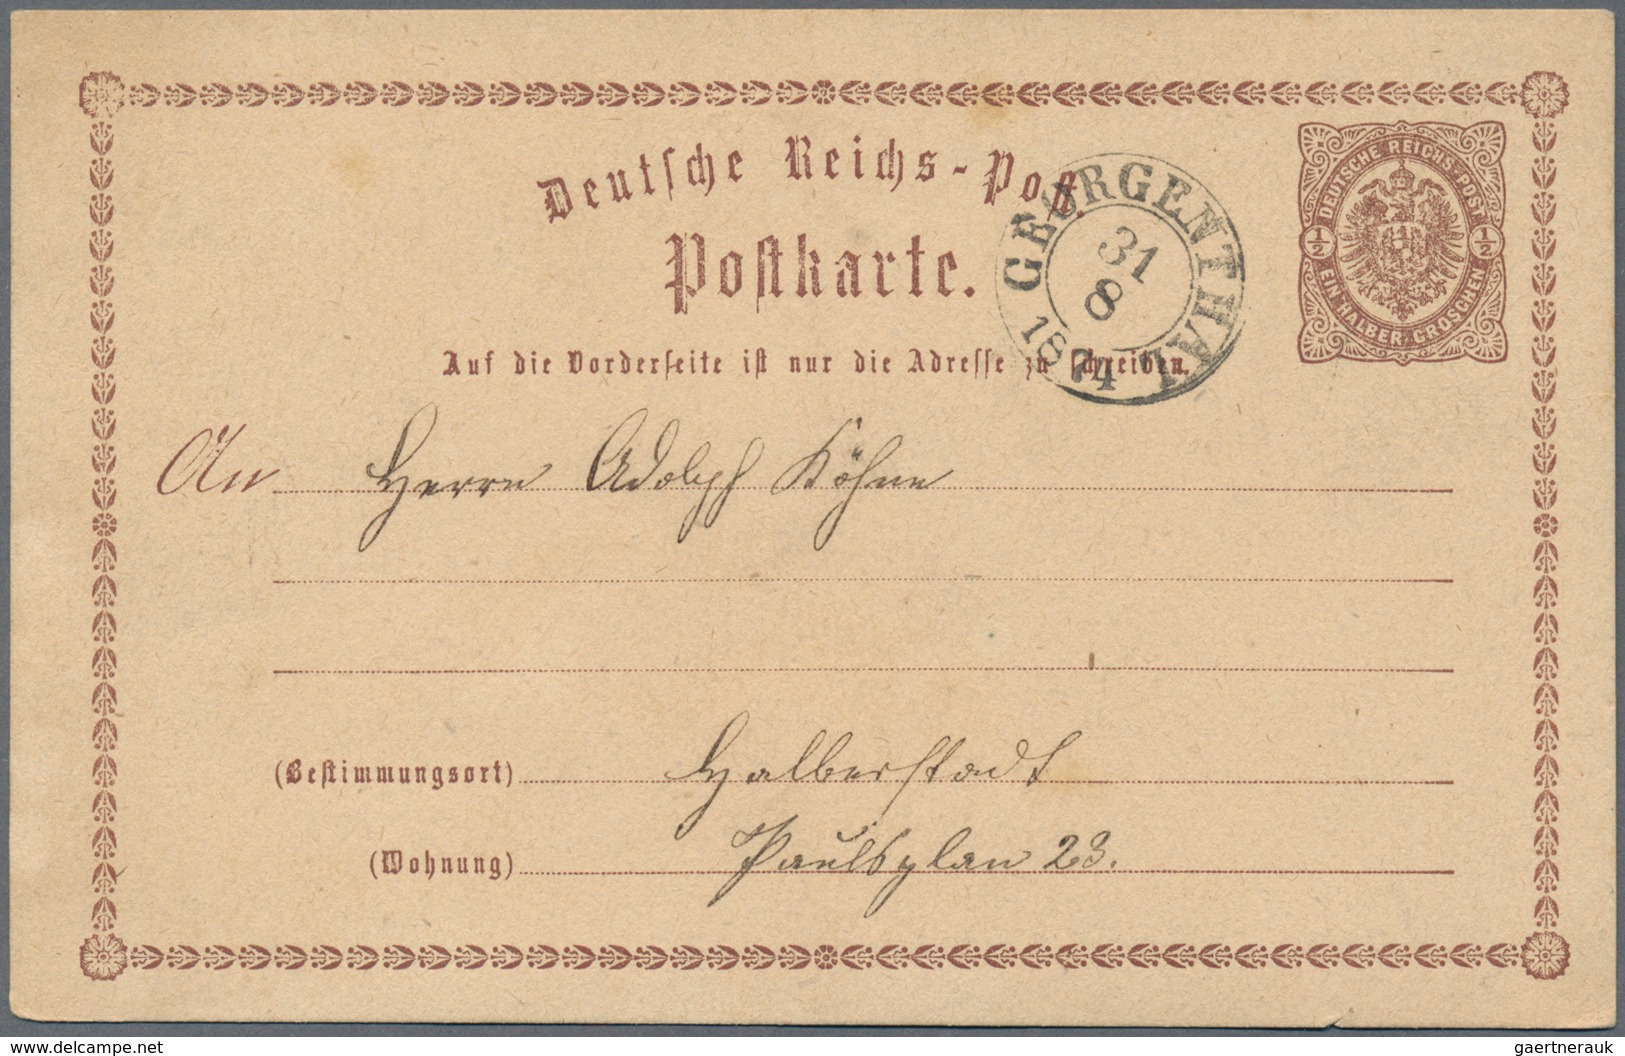 Deutsche Reichs-Post.
Postkarte.
Auf die Vorderseite ist nur die Adresse zu schreiben.
GEORGENTHAL
31
8
1874
DEUTSCHE REICHS-POST
1/2 1/2
EIN HALBER GROSCHEN
An Herrn Adolph Köhne
(Bestimmungsort) Halberstadt
(Wohnung) Paulsplan 23.
www.delcampe.net
gaertnerauk